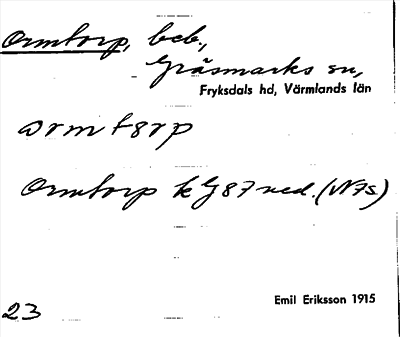 Ormtorp, beb.,
Gräsmarks sn,
Fryksdals hd, Värmlands län
ormtørp
Ormtorp k G87 ned. (N7s)
23
Emil Eriksson 1915